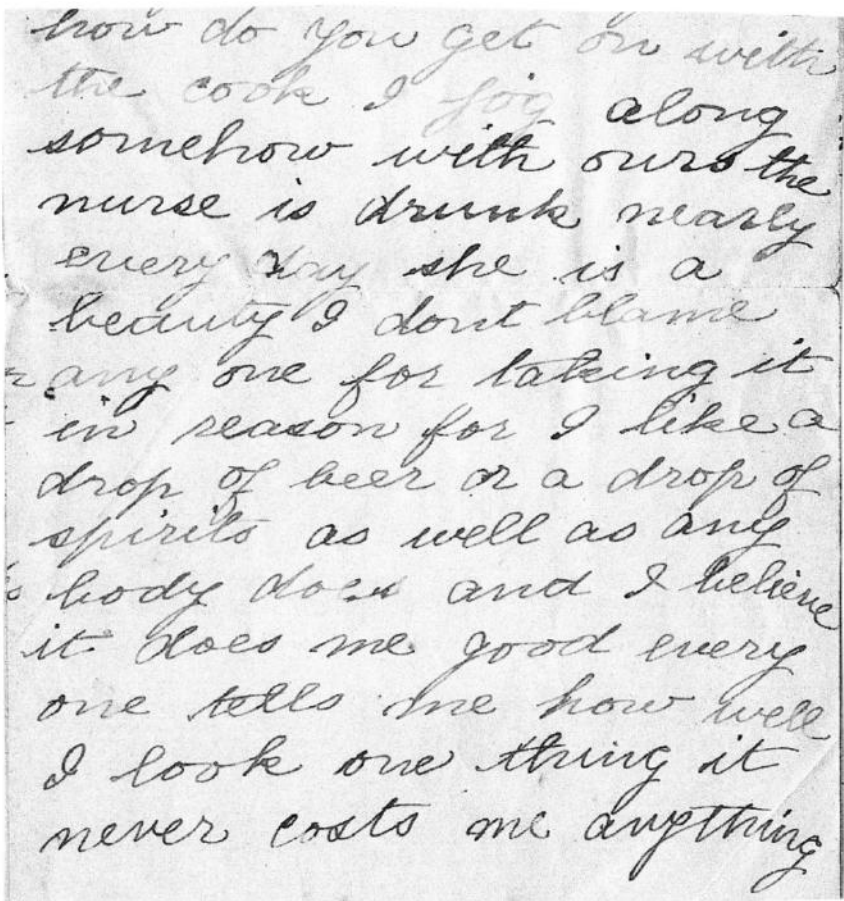 how do you get on with
the cook I jog along
somehow with ours the
nurse is drunk nearly
every day she is a
beauty I dont blame
any one for taking it
in reason for I like a
drop of beer or a drop of
spirits as well as any
body does and I believe
it does me good every
one tells me how well
I look one thing it
never costs me anything